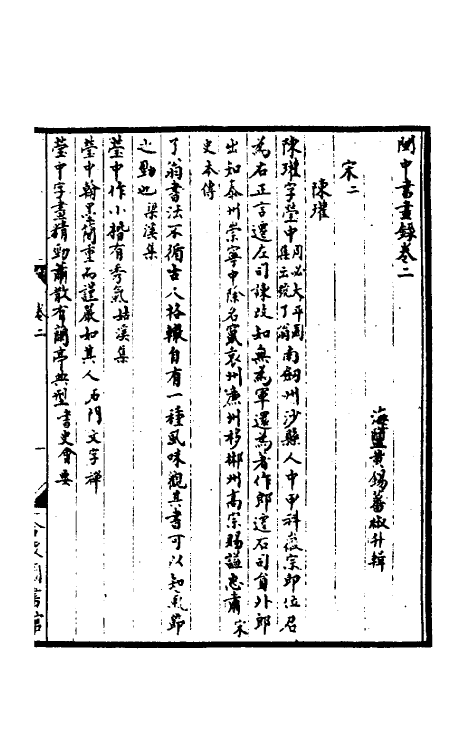 閩中書畫錄卷二
海鹽黃錫蕃椒升輯
宋二
陳瓘
陳瓘字瑩中周必大平園集云號了翁南劔州沙縣人中甲科徽宗即位召
為右正言遷左司諫改知無為軍還為著作郎遷右司員外郎
出知泰州崇寧中除名竄袁州廉州移郴州高宗賜諡忠肅宋
史本傳
了翁書法不循古人格轍自有一種風味觀其書可以知氣節
之勁也梁溪集
瑩中作小楷有秀氣姑溪集
瑩中翰墨簡重而謹嚴如其人石門文字禅
瑩中字畫精勁蕭散有蘭亭典型書史會要
卷二
一
合衆圖書館